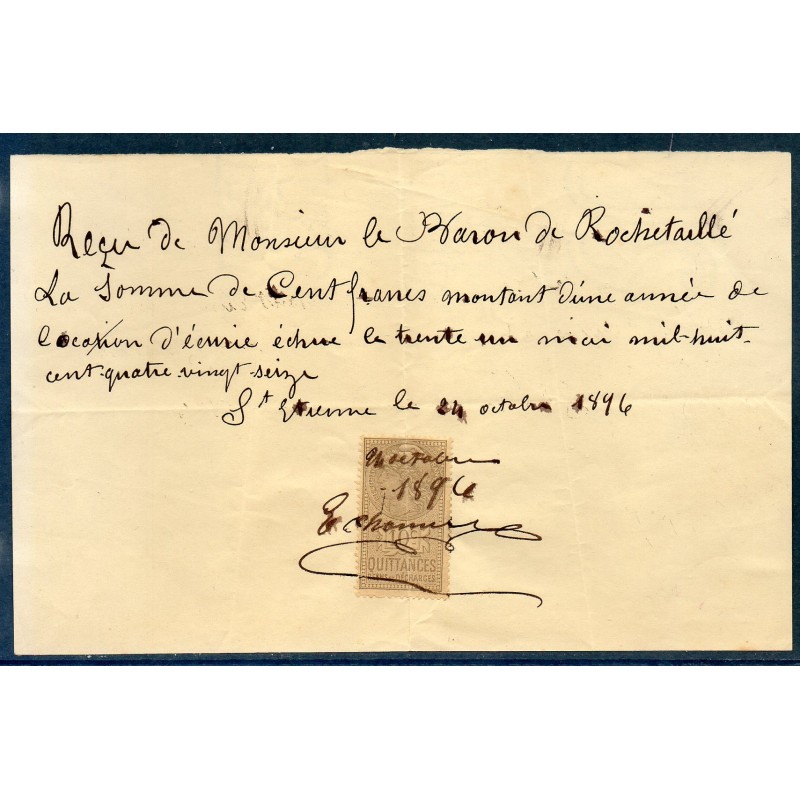 Reçu de Monsieur le Baron de Rochetaillé
La Somme de Cent francs montant d'une année de
location d'écurie échue le trente un mai mil-huit-
cent-quatre-vingt-seize
St Etienne le 24 octobre 1896
24 octobre
1896
QUITTANCES
DÉCHARGES